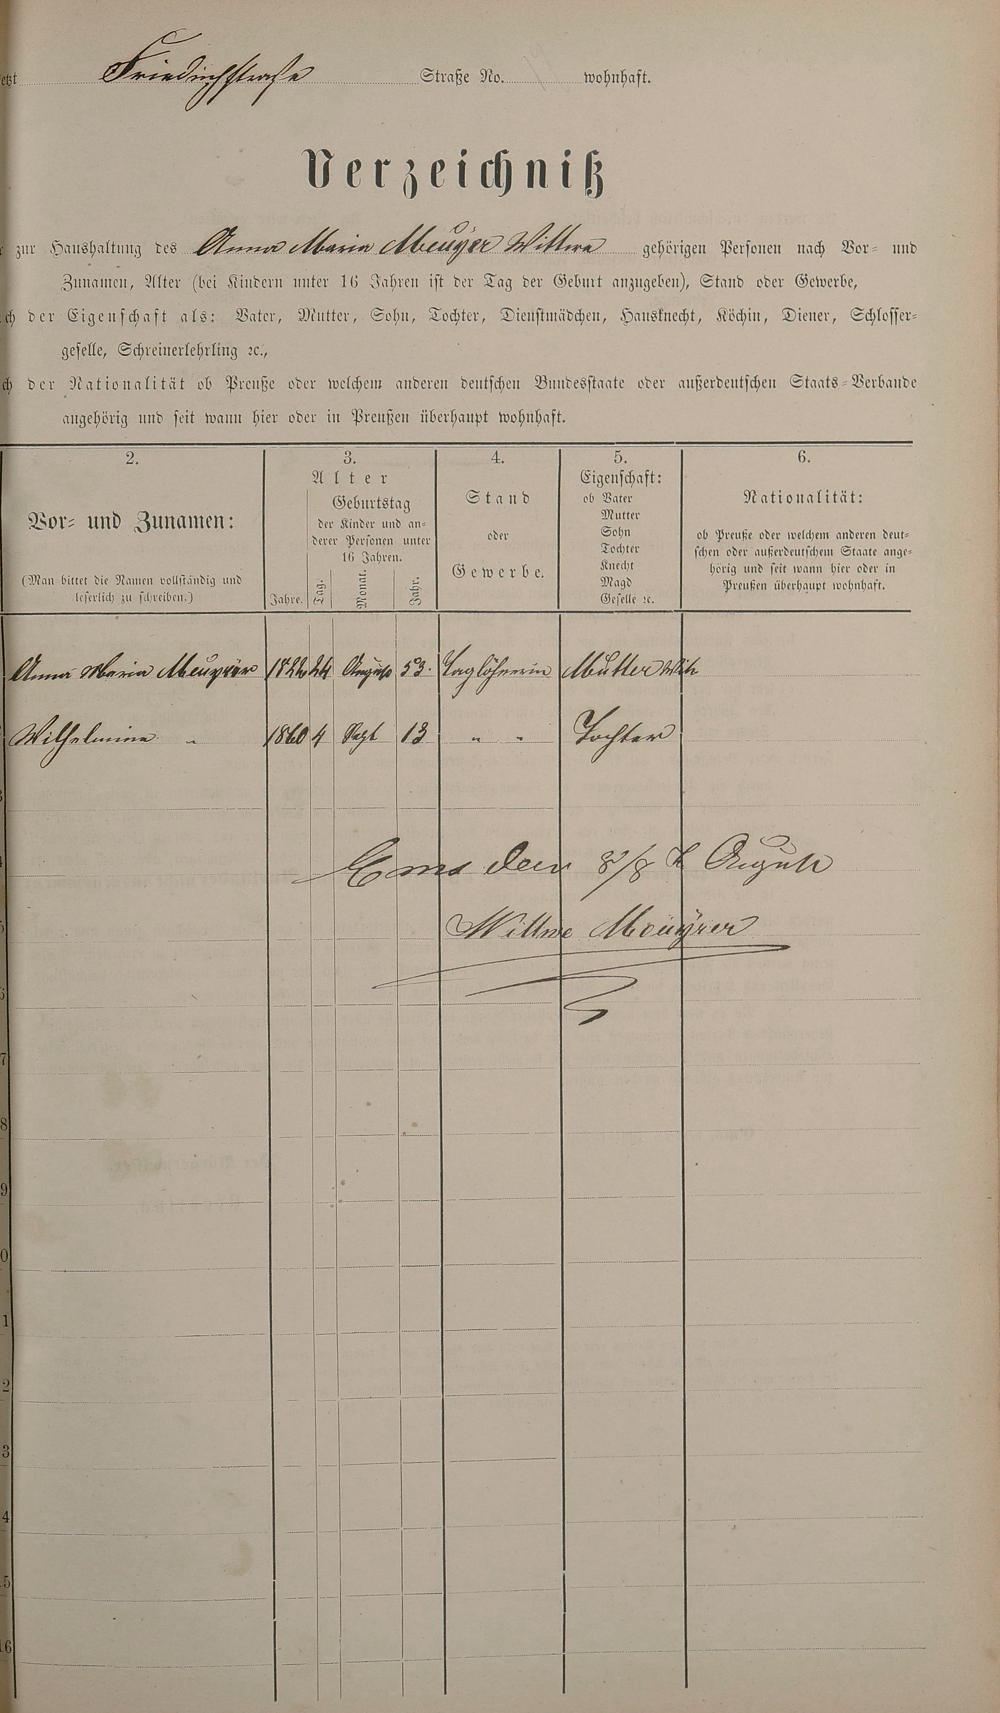 Friedrichstraße Straße No. wohnhaft.
Verzeichniß
zur Haushaltung des Anna Maria Meuyer Wittwe gehörigen Personen nach Vor- und
Zunamen, Alter (bei Kindern unter 16 Jahren ist der Tag der Geburt anzugeben), Stand oder Gewerbe,
der Eigenschaft als: Vater, Mutter, Sohn, Tochter, Dienstmädchen, Hausknecht, Köchin, Diener, Schlosser-
geselle, Schreinerlehrling ꝛc.,
der Nationalität ob Preuße oder welchem anderen deutschen Bundesstaate oder außerdeutschen Staats-Verbande
angehörig und seit wann hier oder in Preußen überhaupt wohnhaft.
2. 3. 4. 5. 6.
Vor- und Zunamen:
(Man bittet die Namen vollständig und
leserlich zu schreiben.)
Alter
Jahre.
Geburtstag
der Kinder und an-
derer Personen unter
16 Jahren.
Tag. Monat. Jahr.
Stand
oder
Gewerbe.
Eigenschaft:
ob Vater
Mutter
Sohn
Tochter
Knecht
Magd
Geselle ꝛc.
Nationalität:
ob Preuße oder welchem anderen deut-
schen oder außerdeutschem Staate ange-
hörig und seit wann hier oder in
Preußen überhaupt wohnhaft.
Anna Maria 24 August 53. Taglöhnerin Mutter
Wilhelmine " 1860 4 Sept 13 " " Tochter
Ems den 8/8 August
Wittwe
7
8
9
0
1
2
3
4
5
6